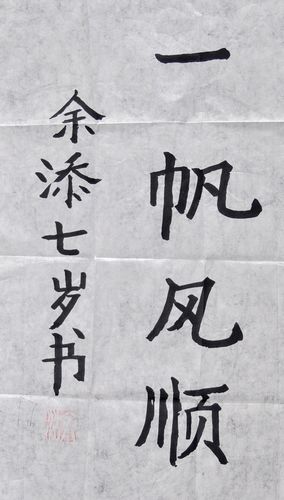 一帆风顺
余添七岁书